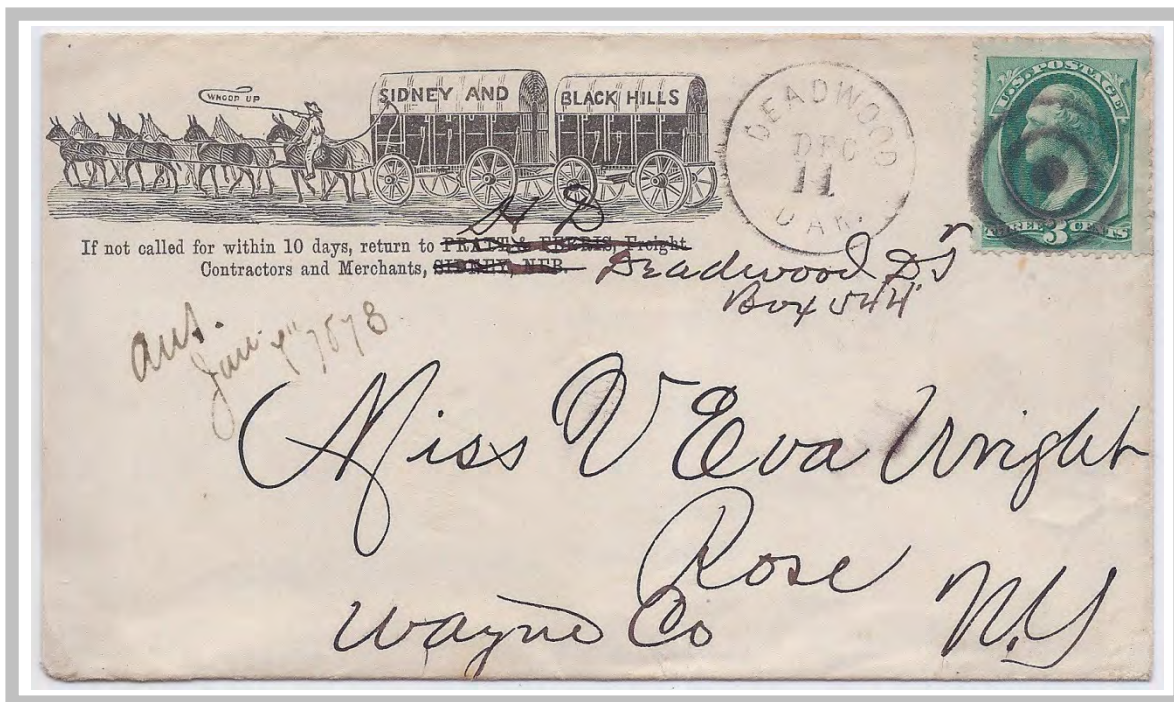 WHOOP UP
SIDNEY AND BLACK HILLS
DEADWOOD
DEC
11
DAK.
U.S. POSTAGE
THREE 3 CENTS
If not called for within 10 days, return to PRATT & FERRIS, Freight
Contractors and Merchants, SIDNEY, NEB.
Deadwood DT
Box 544
ans.
Jan
Miss V Eva Wright
Rose
Wayne Co N.Y